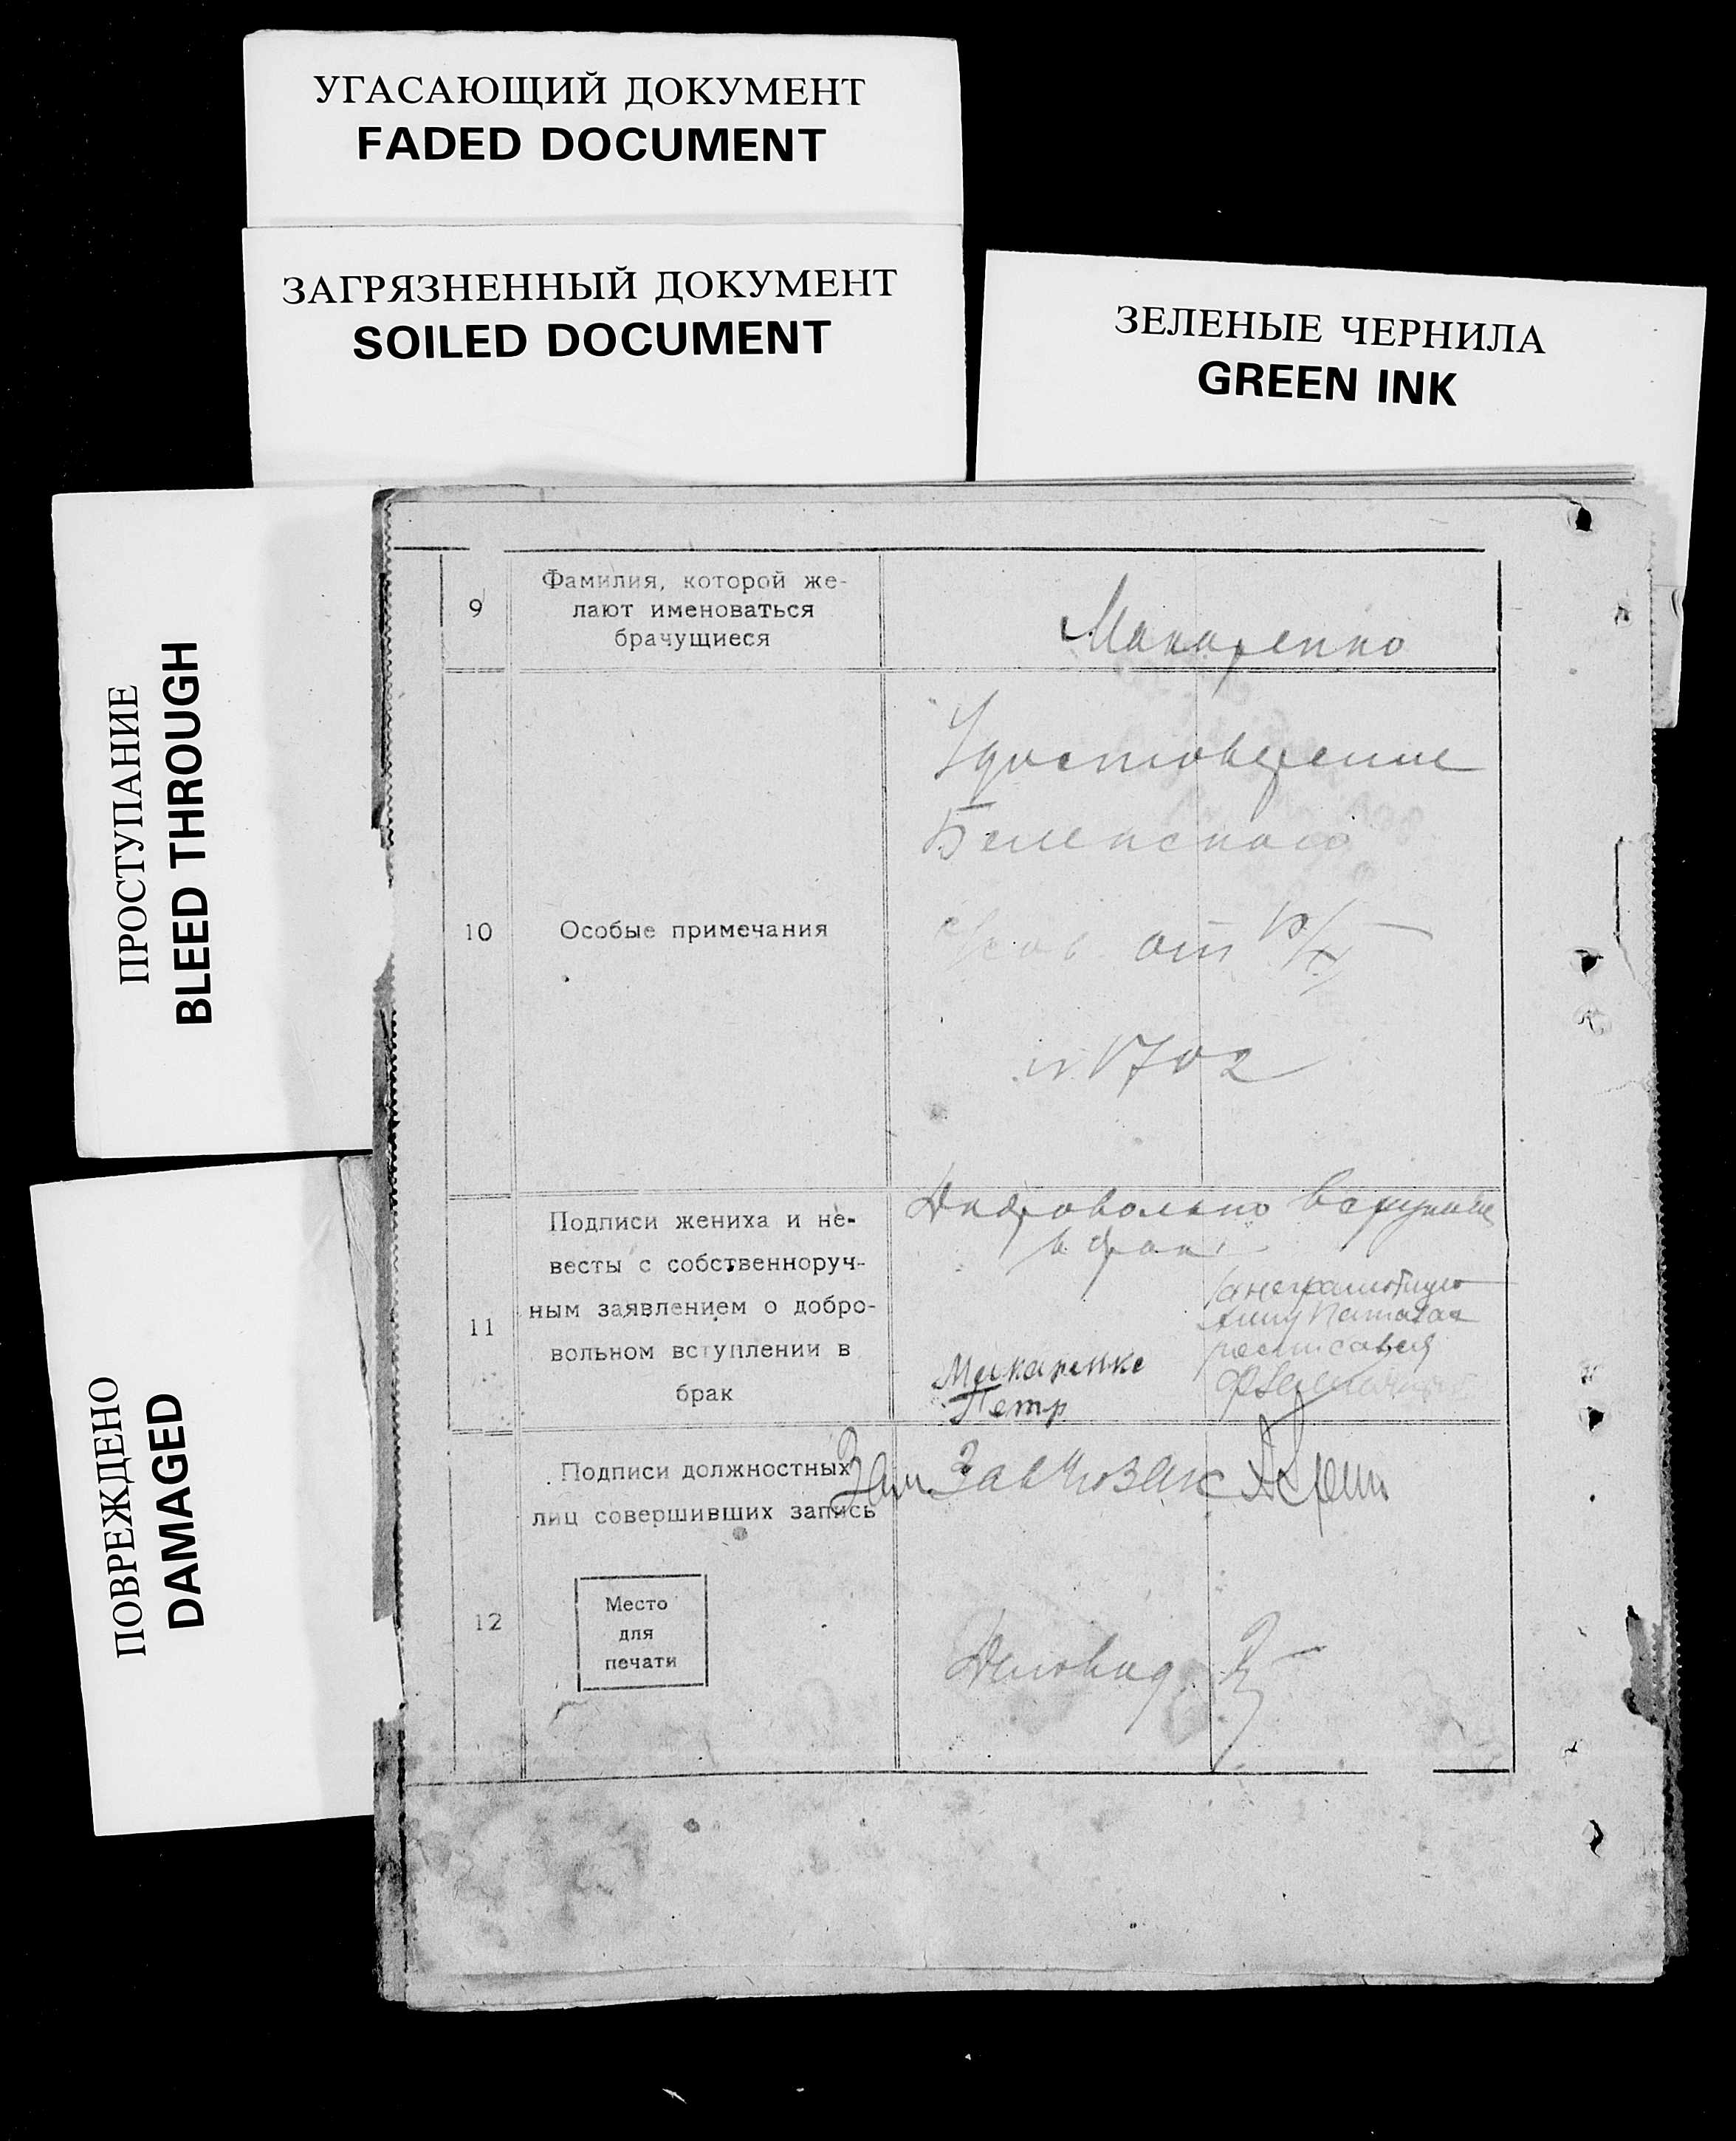 УГАСАЮЩИЙ ДОКУМЕНТ
FADED DOCUMENT
ЗАГРЯЗНЕННЫЙ ДОКУМЕНТ
SOILED DOCUMENT
ЗЕЛЕНЫЕ ЧЕРНИЛА
GREEN INK
ПРОСТУПАНИЕ
BLEED THROUGH
ПОВРЕЖДЕНО
DAMAGED
9
Фамилия, которой же-
лают именоваться
брачущиеся
Макаренко
10
Особые примечания
Удостоверение
от
1702
11
Подписи жениха и не-
весты с собственноруч-
ным заявлением о добро-
вольном вступлении в
брак
Добровольно вступаем
в брак
Макаренко
Петр
за неграмотную
Анну
росписался
12
Подписи должностных
лиц совершивших запись
Зам
Место
для
печати
Деловод